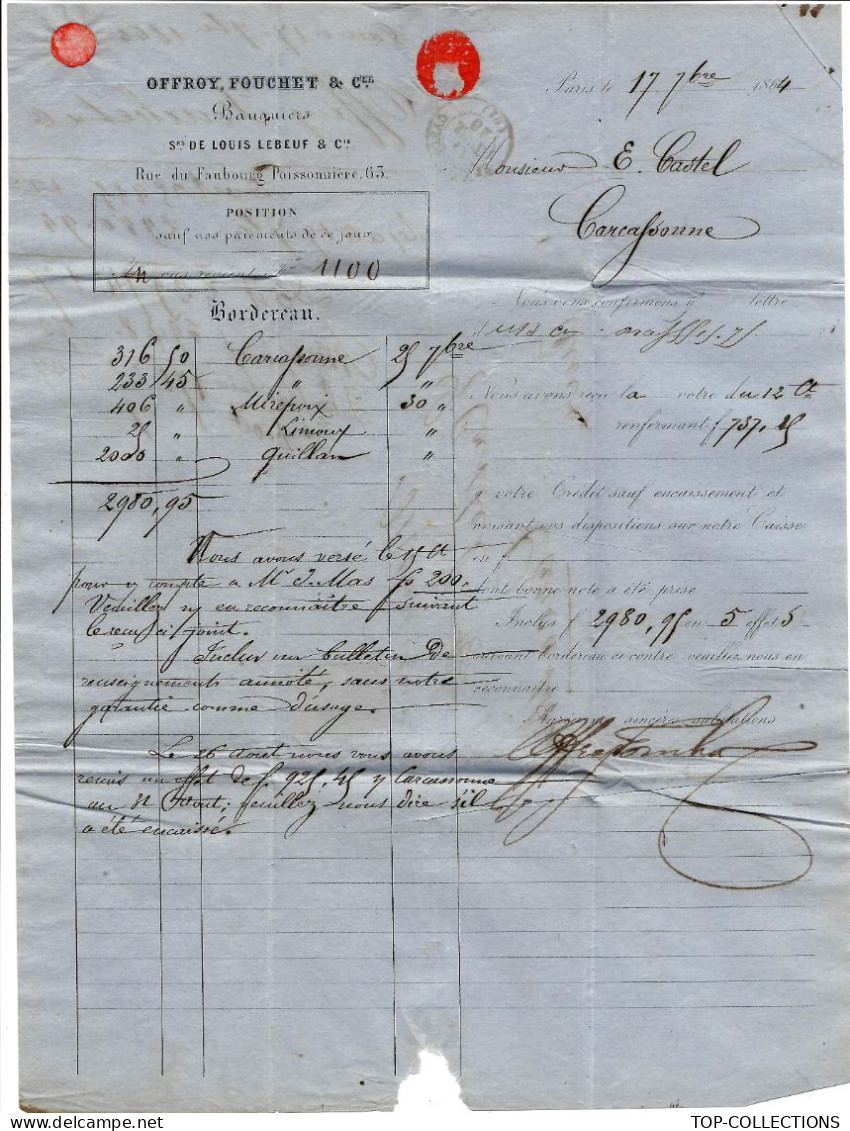 OFFROY, FOUCHET & CIE.
Banquiers
SRS DE LOUIS LEBEUF & CIE
Rue du Faubourg Poissonnière, 63.
Paris le 17 7bre 1864
Monsieur E. Castel
Carcassonne
POSITION
sauf nos paiements de ce jour
1100
Bordereau.
316 50 Carcassonne 25 7bre
233 45 " "
406 " Mirepoix 30 "
25 " Limoux "
2000 " Quillan "
2980,95
Nous avons versé le 15 Ct
pour y compte a Mr J. Mas fs 200.
Veuillez n/ en reconnaître suivant
le recu ci joint.
Inclus un bulletin de
renseignements annoté, sans notre
garantie comme d'usage.
Le 26 Aout nous vous avons
remis un effet de f. 925.45 s/ Carcassonne
au 31 Aout; veuillez nous dire s'il
a été encaissé.
Nous vous confirmons lettre
Nous avons reçu la votre du 12 Ct
renfermant f 737.25
à votre Crédit sauf encaissement et
avisant vos dispositions sur notre Caisse
en f
dont bonne note a été prise
Inclus f 2980,95 en 5 effets
suivant bordereau ci contre veuillez nous en
reconnaître
sincères salutations
TOP-COLLECTIONS